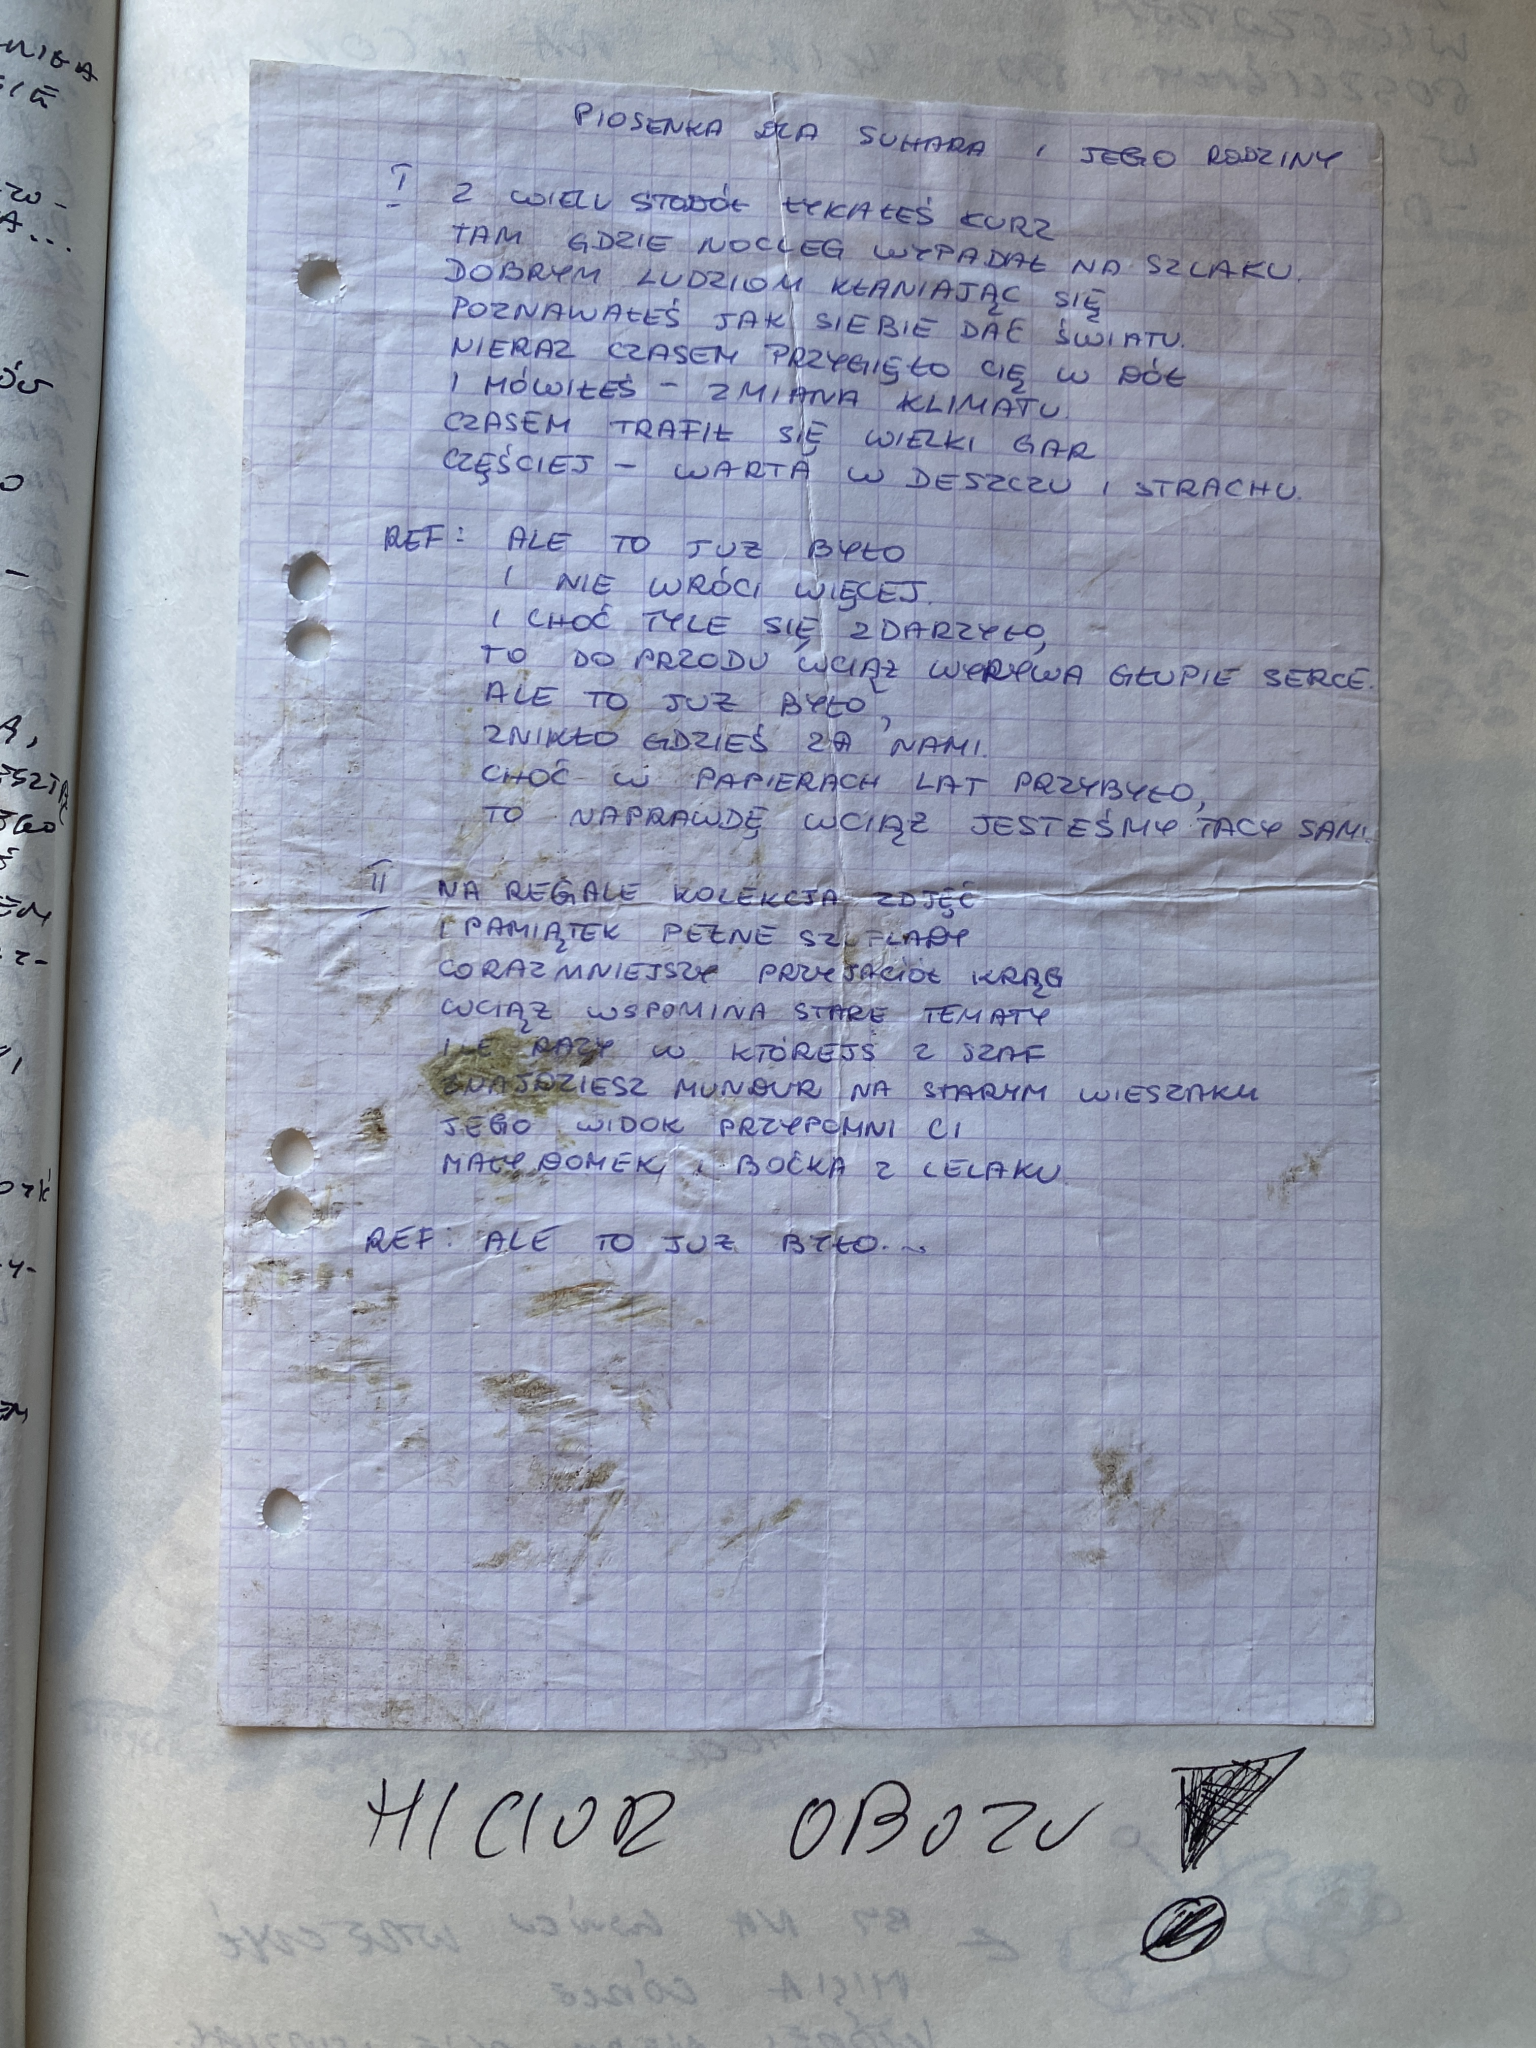 PIOSENKA DLA SUHARA I JEGO RODZINY
I Z WIELU STODÓŁ ŁYKAŁEŚ KURZ
TAM GDZIE NOCLEG WYPADAŁ NA SZLAKU.
DOBRYM LUDZIOM KŁANIAJĄC SIĘ
POZNAWAŁEŚ JAK SIEBIE DAĆ ŚWIATU.
NIERAZ CZASEM PRZYGIĘŁO CIĘ W DÓŁ
I MÓWIŁEŚ - ZMIANA KLIMATU.
CZASEM TRAFIŁ SIĘ WIELKI GAR
CZĘŚCIEJ - WARTA W DESZCZU I STRACHU.
REF: ALE TO JUŻ BYŁO
I NIE WRÓCI WIĘCEJ.
I CHOĆ TYLE SIĘ ZDARZYŁO,
TO DO PRZODU WCIĄŻ WYRYWA GŁUPIE SERCE.
ALE TO JUŻ BYŁO,
ZNIKŁO GDZIEŚ ZA NAMI.
CHOĆ W PAPIERACH LAT PRZYBYŁO,
TO NAPRAWDĘ WCIĄŻ JESTEŚMY TACY SAMI.
II NA REGALE KOLEKCJA ZDJĘĆ
I PAMIĄTEK PEŁNE SZUFLADY
CORAZ MNIEJSZY PRZYJACIÓŁ KRĄG
WCIĄŻ WSPOMINA STARE TEMATY
ILE RAZY W KTÓREJŚ Z SZAF
ZNAJDZIESZ MUNDUR NA STARYM WIESZAKU
JEGO WIDOK PRZYPOMNI CI
MAŁY DOMEK, I BOĆKA Z LELAKU.
REF: ALE TO JUŻ BYŁO...
HICIOR OBOZU !